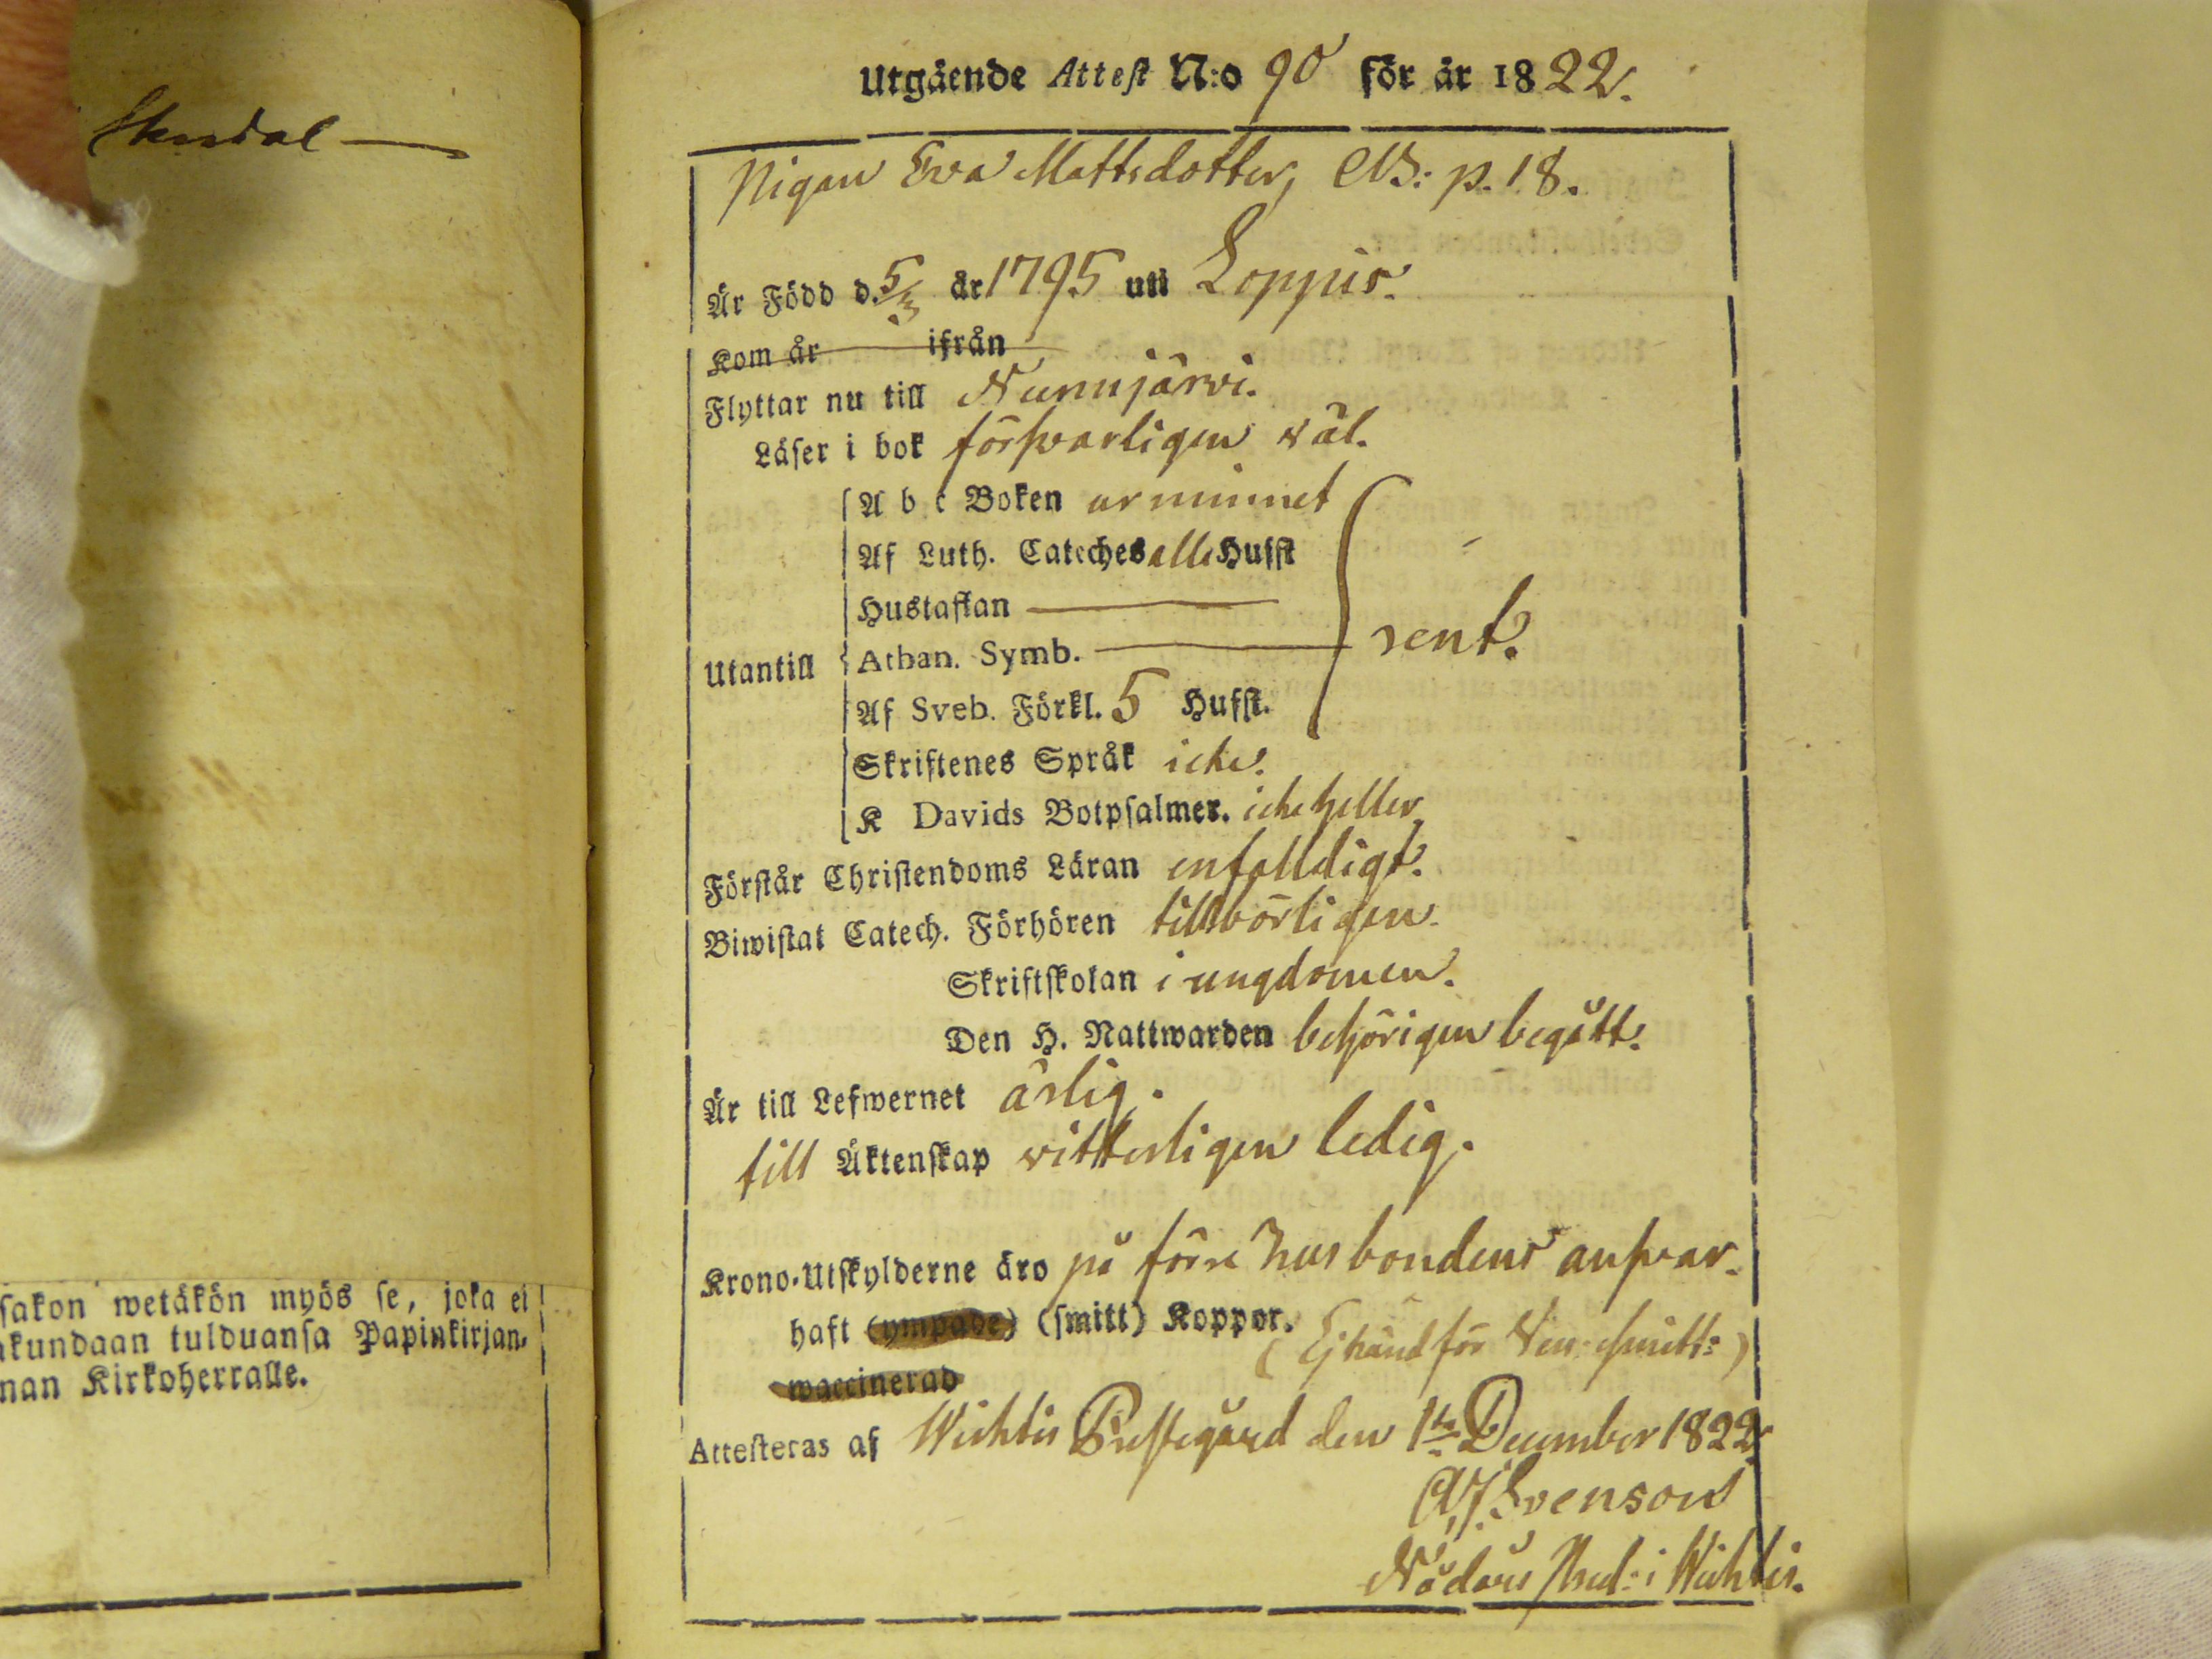 Skardal
sakon wetäkön myös se, joka ei
kundaan tulduansa Papinkirjan,
nan Kirkoherralle.
Utgående Attest N:o 90 för år 1822.
Pigan Eva Mattsdotter, CB: p. 18.
Är Född d. 5/3 år 1795 uti Loppis.
Kom år ifrån
Flyttar nu till Nurmijärvi.
Läser i bok försvarligen väl.
Utantill
A b c Boken ur minnet
Af Luth. Cateches alla Hufst
Hustaflan
Athan. Symb.
Af Sveb. Förkl. 5 Hufst.
rent.
Skriftenes Språk icke.
K Davids Botpsalmer. icke heller
Förstår Christendoms Läran enfalldigt.
Biwistat Catech. Förhören tillbörligen.
Skriftskolan i ungdomen.
Den H. Nattwarden behörigen begått.
Är till Lefwernet ärlig.
till Äktenskap vitterligen ledig.
Krono-Utskylderne äro på förre husbondens ansvar.
haft (ympade) (smitt) Koppor. (Ej känd för Ven: smitt:)
waccinerad
Attesteras af Wichtis Prestegård den 1sta December 1822
A. J. Svenson
Nådårs Pred: i Wichtis.